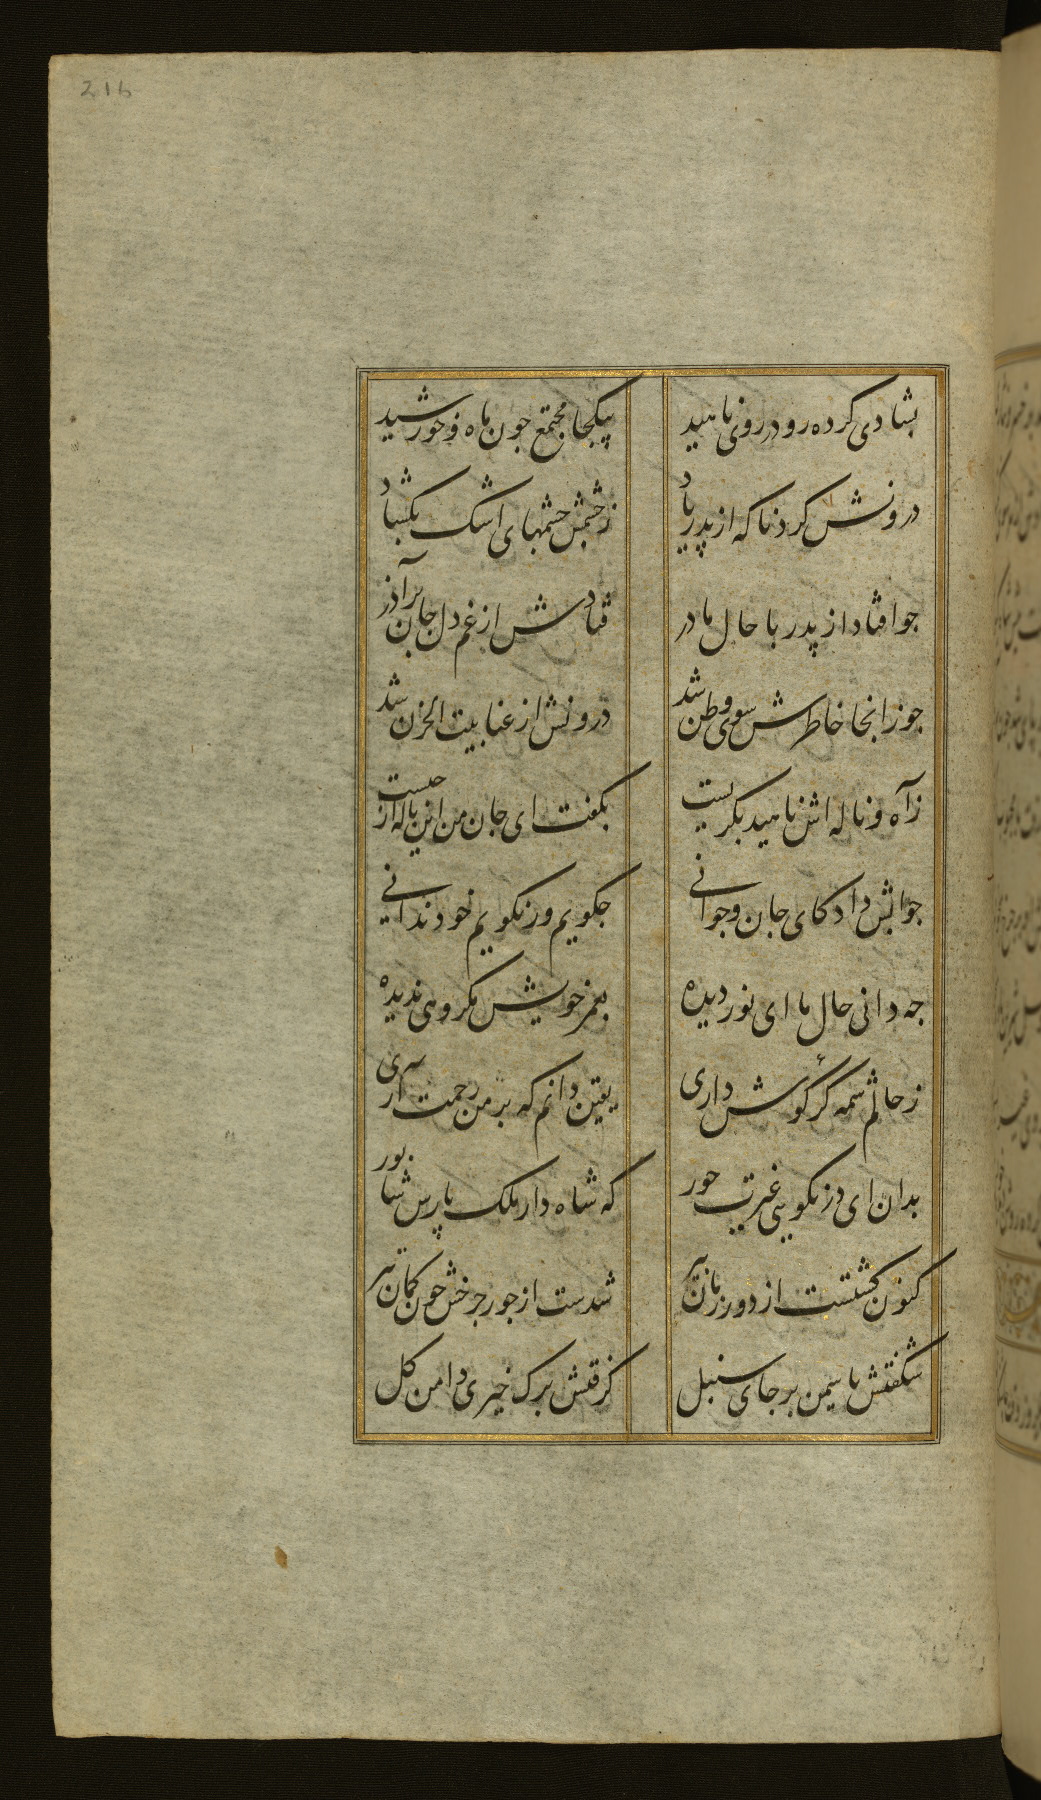 216
بشادی کرده رو در روی ناهید
بیکجا مجتمع چون ماه و خورشید
درونش کرد ناکه از پدر یاد
ز چشمش چشمهای اشک بکشاد
جو افتاد از پدر با حال مادر
فتادش از غم دل جان بر آذر
جو زانجا خاطرش سوی وطن شد
درونش از عنا بیت الحزن شد
ز آه و ناله اش ناهید بکریست
بکفت ای جان من این ناله از جیست
جوابش داد کای جان و جوانی
جکویم ور نکویم خود ندانی
جه دانی حال ما ای نور دیده
بعمر خویش مکروهی ندیده
ز حالم شمه کر کوش داری
یقین دانم که بر من رحمت اری
بدان ای در نکویی غیرت حور
که شاه دار ملک پارس شابور
کنون کشتست از دور زمان پیر
شدست از جور جرخش جون کمان تیر
شکفتش یاسمن بر جای سنبل
کرفتش برک خیری دامن کل